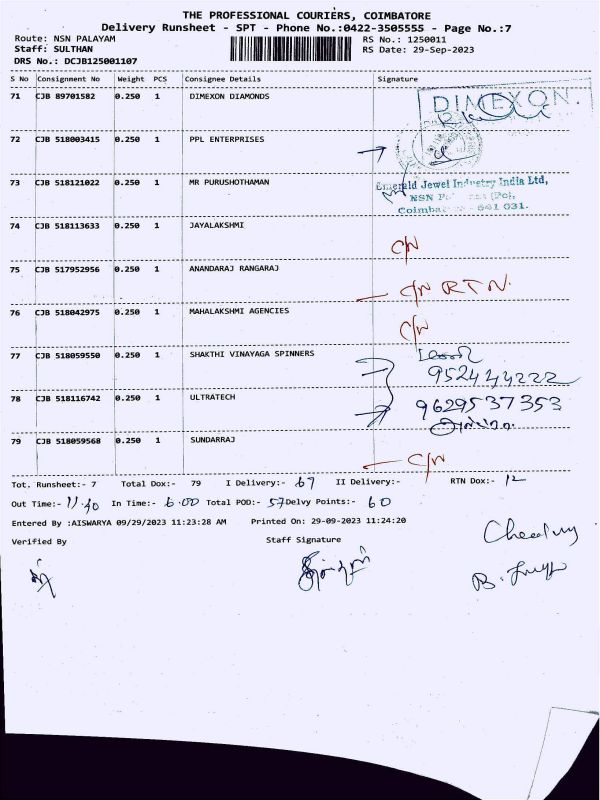 THE PROFESSIONAL COURIERS, COIMBATORE
Delivery Runsheet - SPT - Phone No.:0422-3505555 - Page No.:7
Route: NSN PALAYAM RS No.: 1250011
Staff: SULTHAN RS Date: 29-Sep-2023
DRS No.: DCJB125001107
S No Consignment No Weight PCS Consignee Details Signature
71 CJB 89701582 0.250 1 DIMEXON DIAMONDS DIMEXON.
72 CJB 518003415 0.250 1 PPL ENTERPRISES
73 CJB 518121022 0.250 1 MR PURUSHOTHAMAN Emerald Jewel Industry India Ltd,
NSN (Po),
641 031.
74 CJB 518113633 0.250 1 JAYALAKSHMI C/N
75 CJB 517952956 0.250 1 ANANDARAJ RANGARAJ C/N RTN.
76 CJB 518042975 0.250 1 MAHALAKSHMI AGENCIES C/N
77 CJB 518059550 0.250 1 SHAKTHI VINAYAGA SPINNERS
952444222
78 CJB 518116742 0.250 1 ULTRATECH 9629537353
79 CJB 518059568 0.250 1 SUNDARRAJ C/N
Tot. Runsheet:- 7 Total Dox:- 79 I Delivery:- 67 II Delivery:- RTN Dox:- 12
Out Time:- 11.40 In Time:- 6.00 Total POD:- 57 Delvy Points:- 60
Entered By :AISWARYA 09/29/2023 11:23:28 AM Printed On: 29-09-2023 11:24:20
Verified By Staff Signature